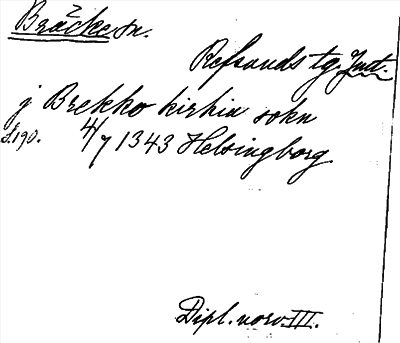 Bräcke sn.
Refsunds tg. Jmt.
j Brekko kirkiu sokn
s. 190. 4/7 1343 Helsingborg
Dipl. norv. III.